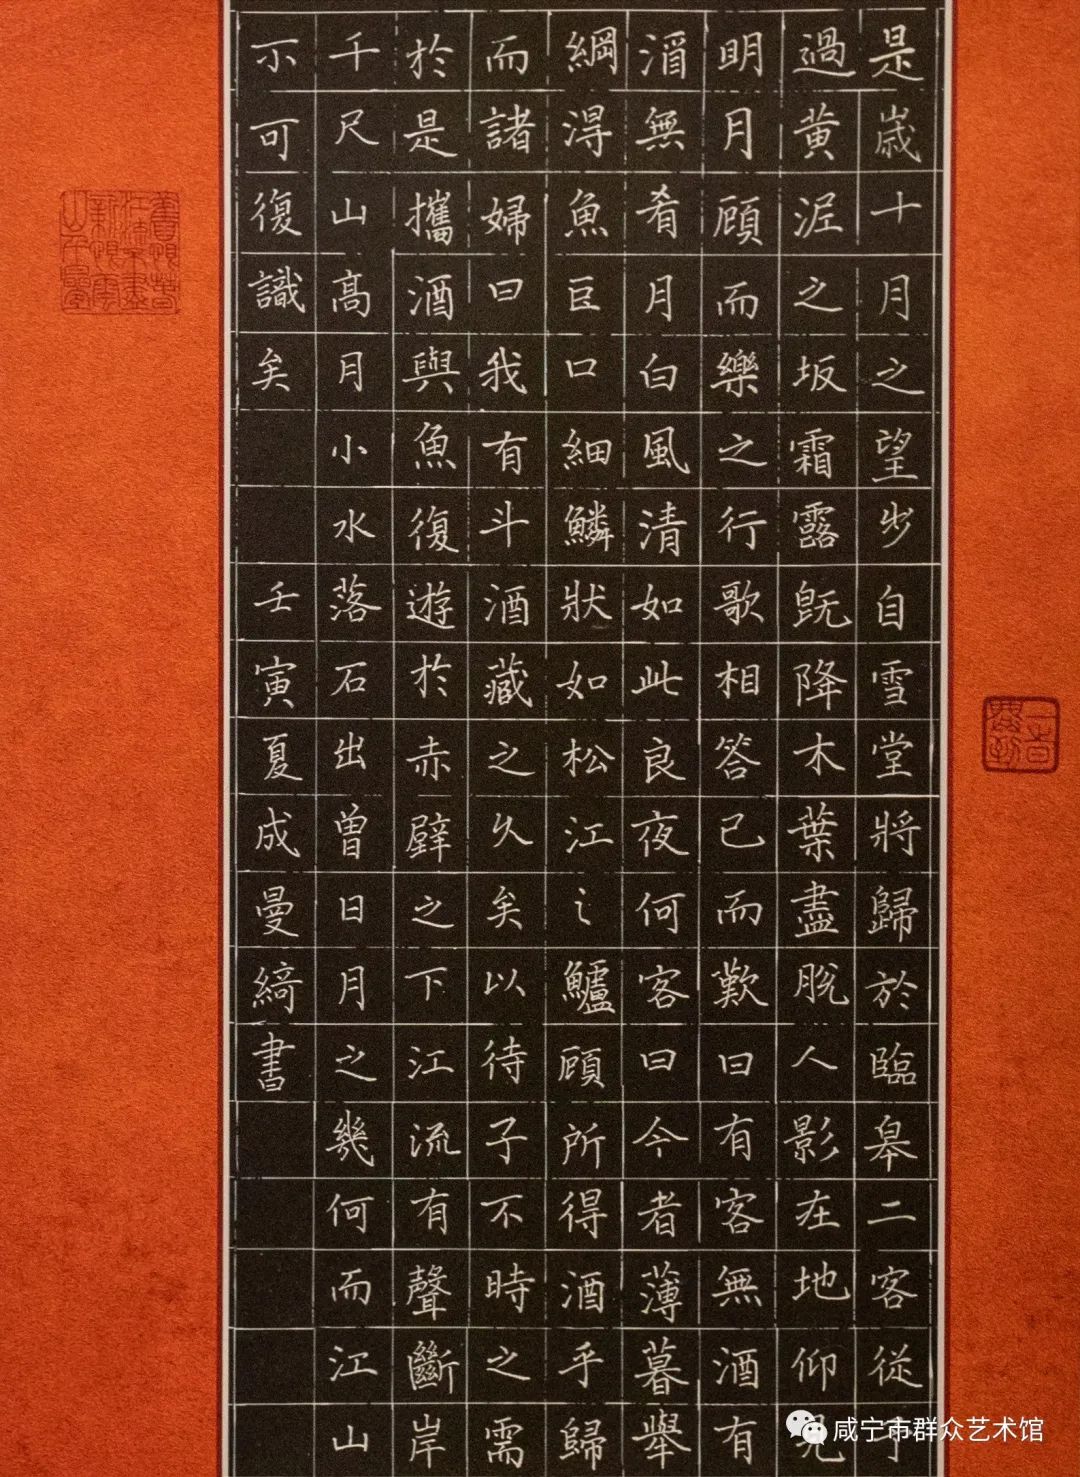 是歲十月之望步自雪堂將歸於臨皋二客從予
過黃泥之坂霜露既降木葉盡脫人影在地仰見
明月顧而樂之行歌相答已而歎曰有客無酒有
酒無肴月白風清如此良夜何客曰今者薄暮舉
綱淂魚巨口細鱗狀如松江之鱸顧所得酒乎歸
而諸婦曰我有斗酒藏之久矣以待子不時之需
於是攜酒與魚復遊於赤壁之下江流有聲斷岸
千尺山高月小水落石出曾日月之幾何而江山
不可復識矣 壬寅夏成曼綺書
咸宁市群众艺术馆